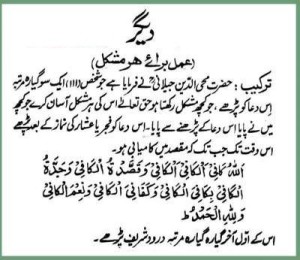 دیگر
(عمل برائے ہر مشکل)
ترکیب : حضرت محی الدین جیلانیؒ نے فرمایا ہے جو شخص (۱۱۱) ایک سو گیارہ مرتبہ
اس دعا کو پڑھے، جو کچھ مشکل رکھتا ہو حق تعالٰے اس کی ہر مشکل آسان کرے جو کچھ
میں نے پایا اس دعا کے پڑھنے سے پایا۔ اس دعا کو فجر یا عشار کی نماز کے بعد پڑھے
اس وقت تک جب تک کہ مقصد میں کامیابی ہو۔
اَللّٰهُ كَافِیْ اَلْكَافِیْ اَلْكَافِیْ وَقَصَدْتُ الْكَافِیْ وَجَدتُّهُ
الْكَافِیْ بِكَافِی الْكَافِیْ وَكَفَانِیَ الْكَافِیْ وَنِعْمَ الْكَافِیْ
وَلِلّٰهِ الْحَمْدُ ط
اس کے اول آخر گیارہ گیارہ مرتبہ درود شریف پڑھے۔